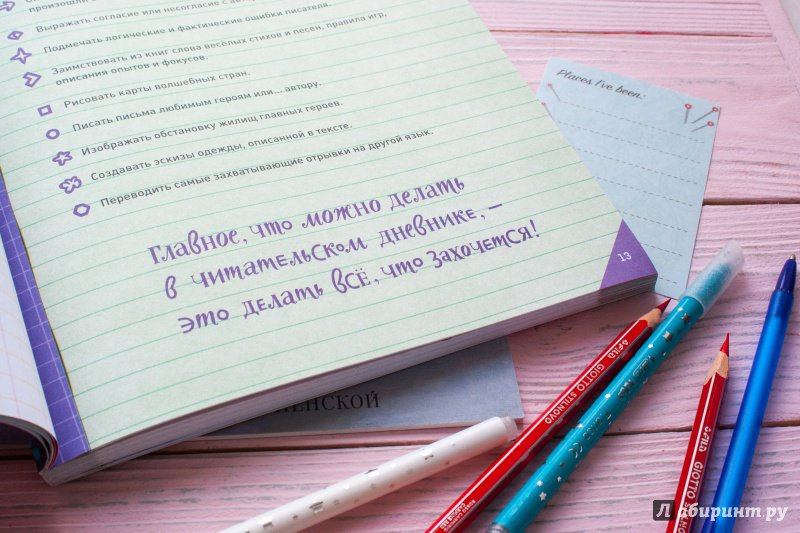 произошли
Выражать согласие или несогласие с
Подмечать логические и фактические ошибки писателя.
Заимствовать из книг слова весёлых стихов и песен, правила игр,
описания опытов и фокусов.
Рисовать карты волшебных стран.
Писать письма любимым героям или... автору.
Изображать обстановку жилищ главных героев.
Создавать эскизы одежды, описанной в тексте.
Переводить самые захватывающие отрывки на другой язык.
Главное, что можно делать
в читательском дневнике, –
это делать всё, что захочется!
13
Places I've been:
ЛЕНСКОЙ
FILA GIOTTO STILNOVO
FILA GIOTTO STILNOVO
Лабиринт.ру